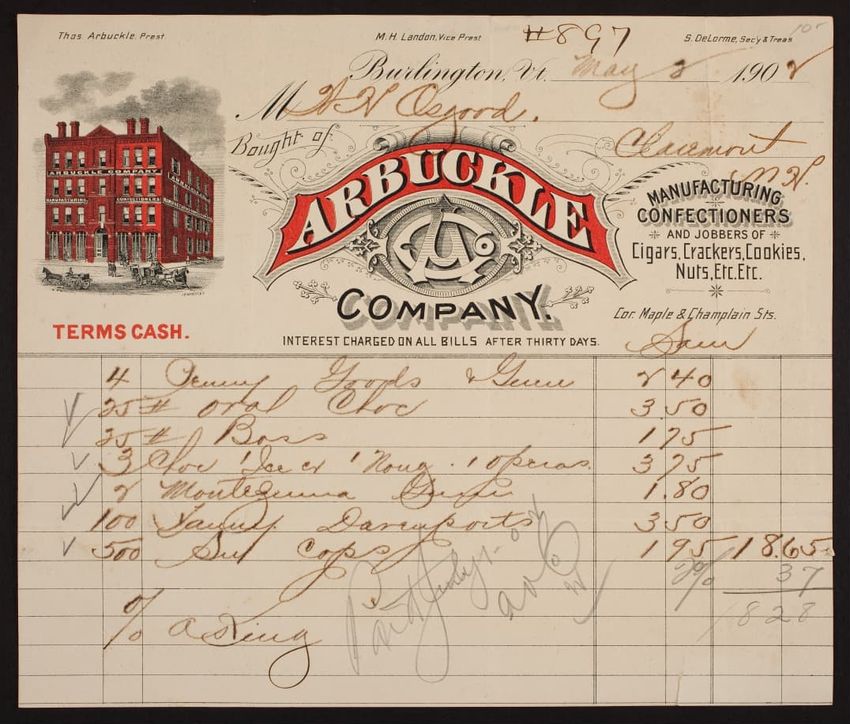 Thos Arbuckle, Prest M. H. Landon, Vice Prest #897 S. DeLorme, Sec'y & Treas
Burlington, Vt. May 2 1902
M H H Osgood.
Bought of Claremont
N. H.
ARBUCKLE
COMPANY.
ARBUCKLE COMPANY
MANUFACTURING CONFECTIONERS
TERMS CASH.
MANUFACTURING
CONFECTIONERS
AND JOBBERS OF
Cigars, Crackers, Cookies,
Nuts, Etc. Etc.
Cor. Maple & Champlain Sts.
INTEREST CHARGED ON ALL BILLS AFTER THIRTY DAYS.
Sam
4 Penny Goods & Gum 2 40
25 # Oral Choc 3 50
25 # Boss 1 75
3 Choc 1 Ice cr 1 Noug. 1 operas. 3 75
2 Montezuma Gum 1.80
100 Fanny Davenports 3 50
500 cops 1 95 18.65
2% 37
18 28
% A King
Paid July 1-02